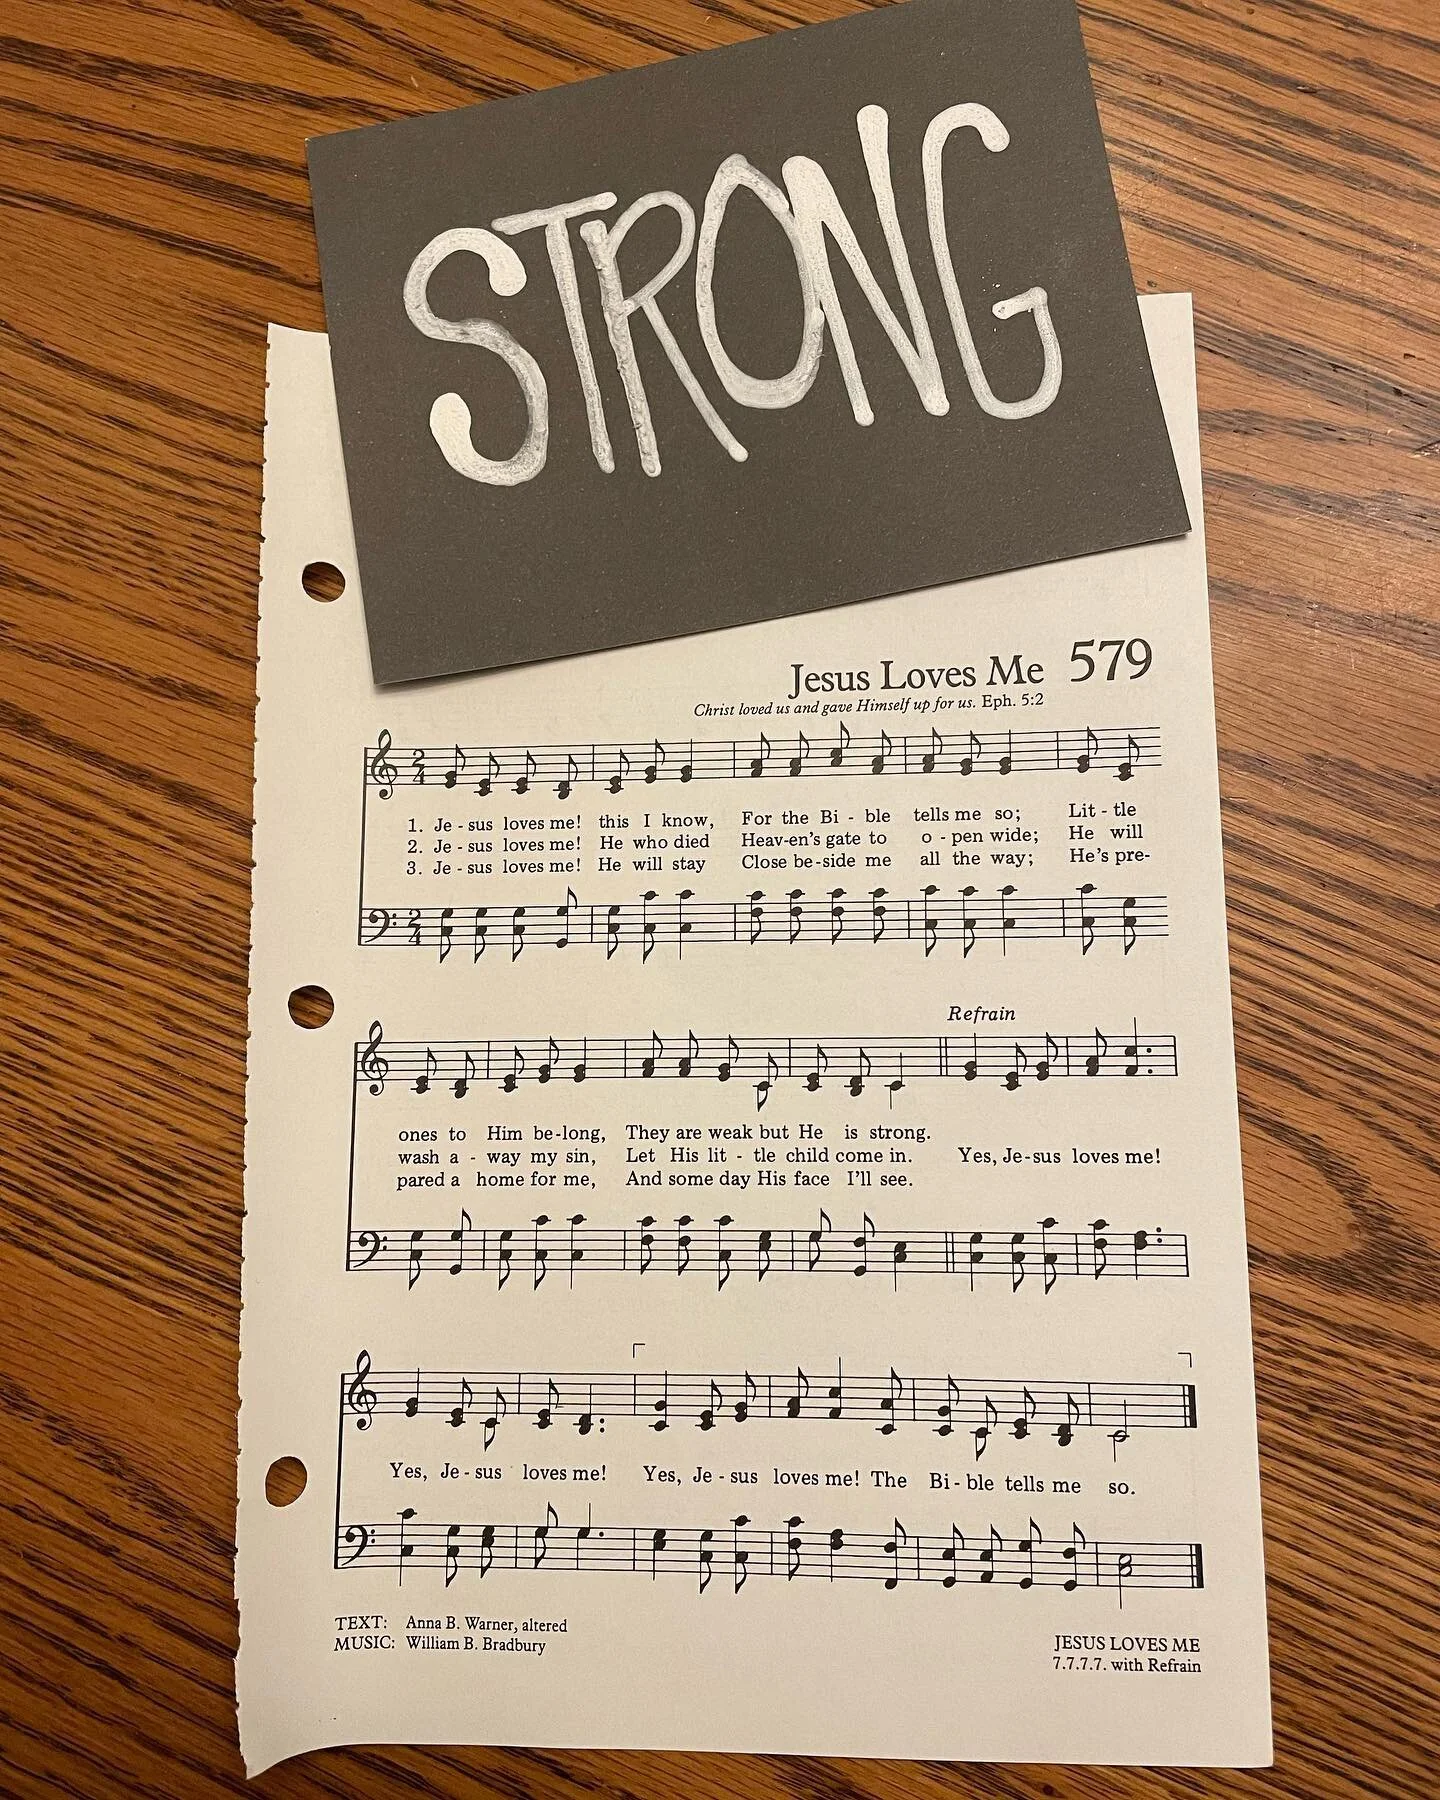 STRONG
Jesus Loves Me 579
Christ loved us and gave Himself up for us. Eph. 5:2
2 4
1. Je - sus loves me! this I know, For the Bi - ble tells me so; Lit - tle
2. Je - sus loves me! He who died Heav-en's gate to o - pen wide; He will
3. Je - sus loves me! He will stay Close be-side me all the way; He's pre-
2 4
Refrain
ones to Him be-long, They are weak but He is strong.
wash a - way my sin, Let His lit - tle child come in. Yes, Je-sus loves me!
pared a home for me, And some day His face I'll see.
Yes, Je - sus loves me! Yes, Je - sus loves me! The Bi - ble tells me so.
TEXT: Anna B. Warner, altered
MUSIC: William B. Bradbury
JESUS LOVES ME
7.7.7.7. with Refrain